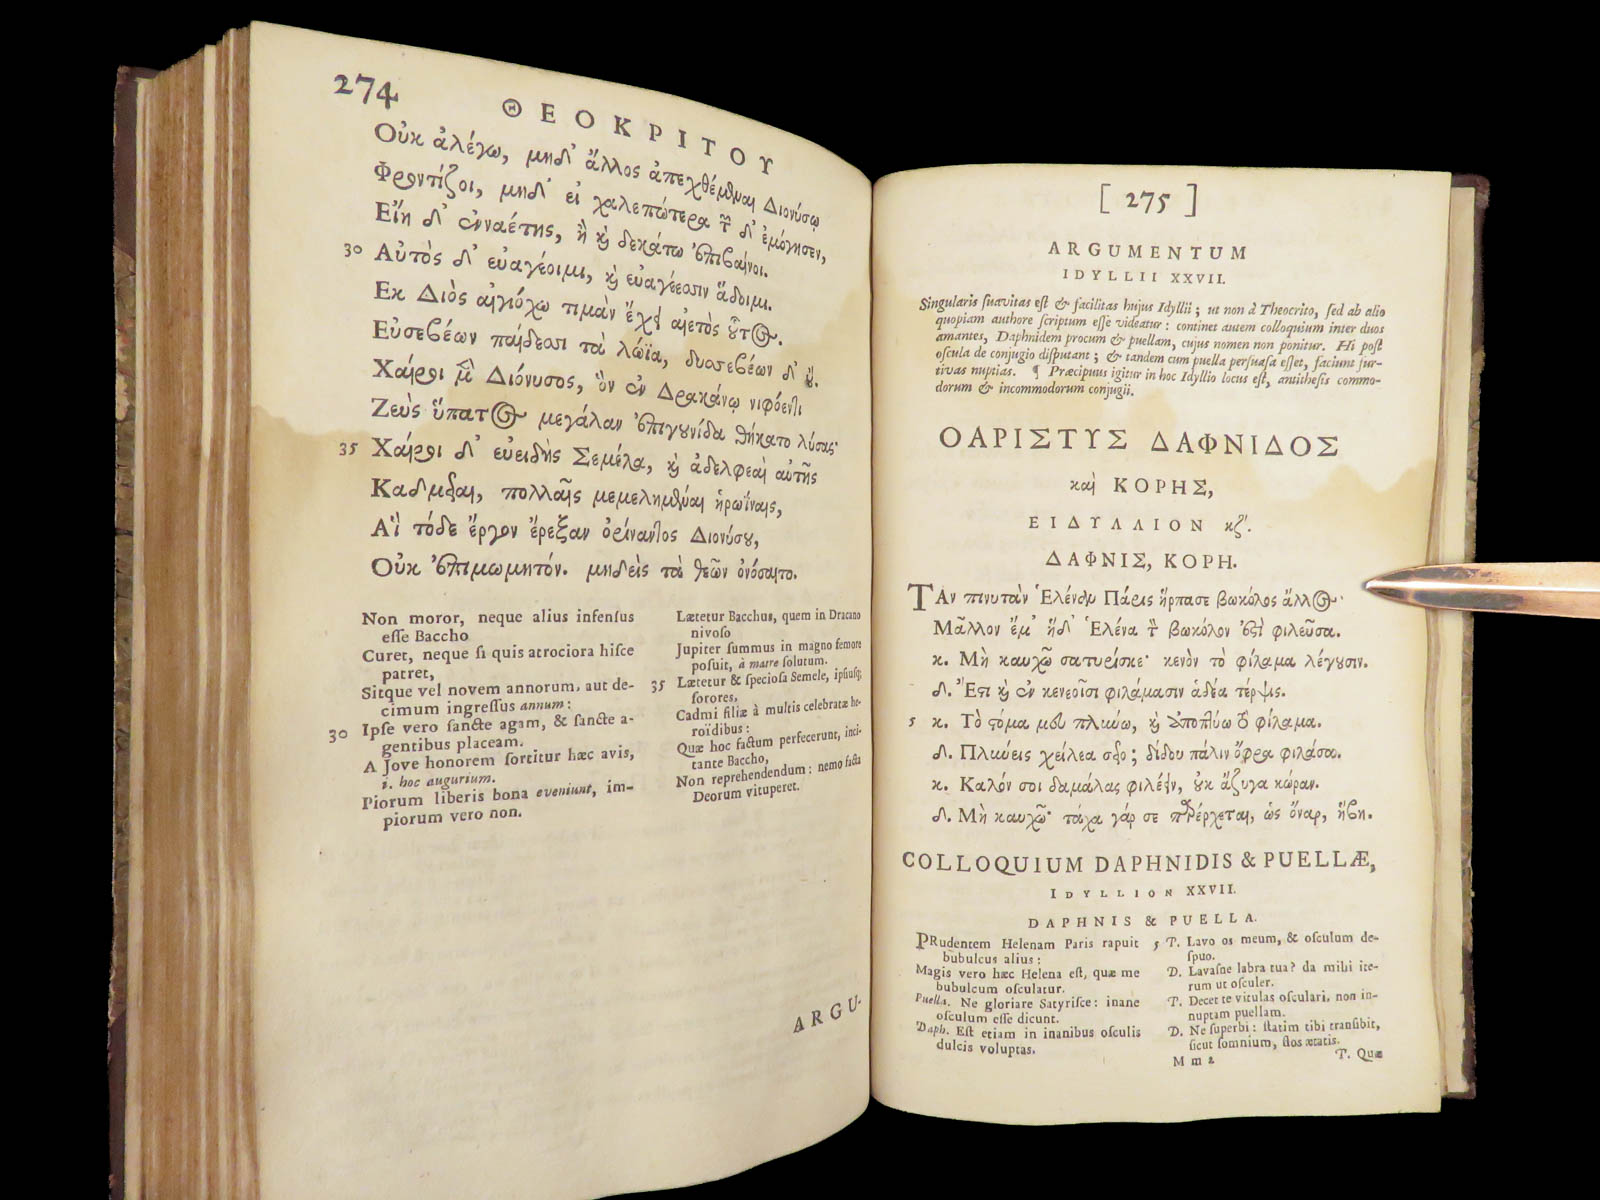 274
ΘΕΟΚΡΙΤΟΥ
Οὐκ ἀλέγω, μηδ' ἄλλος ἀπεχθέμεναι Διονύσῳ
Φροντίζοι, μηδ' εἰ χαλεπώτερα τῶν δ' ἐμόγησεν,
Εἴη δ' ἐνναέτης, ἢ καὶ δεκάτω ἐπιβαίνοι.
30 Αὐτὸς δ' εὐαγέοιμι, καὶ εὐαγέεσσιν ἅδοιμι.
Εκ Διὸς αἰγιόχω τιμὰν ἔχει αἰετὸς οὗτος.
Εὐσεβέων παίδεσσι τὰ λώϊα, δυσσεβέων δ' οὔ.
Χαίροι μὲν Διόνυσος, ὃν ἐν Δρακάνῳ νιφόεντι
Ζεὺς ὕπατος μεγάλαν ἐπιγουνίδα θήκατο λύσας·
35 Χαίροι δ' εὐειδὴς Σεμέλα, καὶ ἀδελφεαὶ αὐτῆς
Καδμεῖαι, πολλαῖς μεμελημέναι ἡρωΐναις,
Αἳ τόδε ἔργον ἔρεξαν ὀρίναντος Διονύσου,
Οὐκ ἐπιμωμητόν. μηδεὶς τὰ θεῶν ὀνόσαιτο.
Non moror, neque alius infenſus
eſſe Baccho
Curet, neque ſi quis atrociora hiſce
patret,
Sitque vel novem annorum, aut de-
cimum ingreſſus annum:
30 Ipſe vero ſancte agam, & ſancte a-
gentibus placeam.
A Jove honorem ſortitur hæc avis,
i. hoc augurium.
Piorum liberis bona eveniunt, im-
piorum vero non.
Lætetur Bacchus, quem in Dracano
nivoſo
Jupiter ſummus in magno femore
poſuit, à matre ſolutum.
35 Lætetur & ſpecioſa Semele, ipſiuſq;
ſorores,
Cadmi filiæ à multis celebratæ he-
roïdibus:
Quæ hoc factum perfecerunt, inci-
tante Baccho,
Non reprehendendum: nemo facta
Deorum vituperet.
ARGU-
[ 275 ]
ARGUMENTUM
IDYLLII XXVII.
Singularis ſuavitas eſt & facilitas hujus Idyllii; ut non à Theocrito, ſed ab alio
quopiam authore ſcriptum eſſe videatur: continet autem colloquium inter duos
amantes, Daphnidem procum & puellam, cujus nomen non ponitur. Hi poſt
oſcula de conjugio diſputant; & tandem cum puella perſuaſa eſſet, faciunt fur-
tivas nuptias. ¶ Præcipuus igitur in hoc Idyllio locus eſt, antitheſis commo-
dorum & incommodorum conjugii.
ΟΑΡΙΣΤΥΣ ΔΑΦΝΙΔΟΣ
καὶ ΚΟΡΗΣ,
ΕΙΔΥΛΛΙΟΝ κζ'.
ΔΑΦΝΙΣ, ΚΟΡΗ.
ΤΑν πινυτὰν Ἑλέναν Πάρις ἥρπασε βωκόλος ἄλλος·
Μᾶλλον ἔμ' ἥδ' Ἑλένα τὸν βωκόλον ἐστὶ φιλεῦσα.
κ. Μὴ καυχῶ σατυρίσκε· κενὸν τὸ φίλαμα λέγουσιν.
δ. Ἔστι καὶ ἐν κενεοῖσι φιλάμασιν ἁδέα τέρψις.
5 κ. Τὸ στόμα μου πλύνω, καὶ ἀποπτύω τὸ φίλαμα.
δ. Πλύνεις χείλεα σεῖο; δίδου πάλιν ὄφρα φιλάσω.
κ. Καλόν σοι δαμάλας φιλέειν, οὐκ ἄζυγα κώραν.
δ. Μὴ καυχῶ· τάχα γάρ σε παρέρχεται, ὡς ὄναρ, ἥβη.
COLLOQUIUM DAPHNIDIS & PUELLÆ,
IDYLLION XXVII.
DAPHNIS & PUELLA.
PRudentem Helenam Paris rapuit
bubulcus alius:
Magis vero hæc Helena eſt, quæ me
bubulcum oſculatur.
Puella. Ne gloriare Satyriſce: inane
oſculum eſſe dicunt.
Daph. Eſt etiam in inanibus oſculis
dulcis voluptas.
5 P. Lavo os meum, & oſculum de-
ſpuo.
D. Lavaſne labra tua? da mihi ite-
rum ut oſculer.
P. Decet te vitulas oſculari, non in-
nuptam puellam.
D. Ne ſuperbi: ſtatim tibi tranſibit,
ſicut ſomnium, flos ætatis.
M m 2
P. Quæ